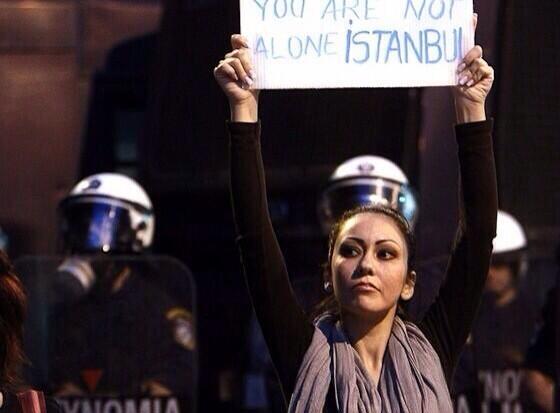 YOU ARE NOT
ALONE İSTANBUL
YNOMIA
NO